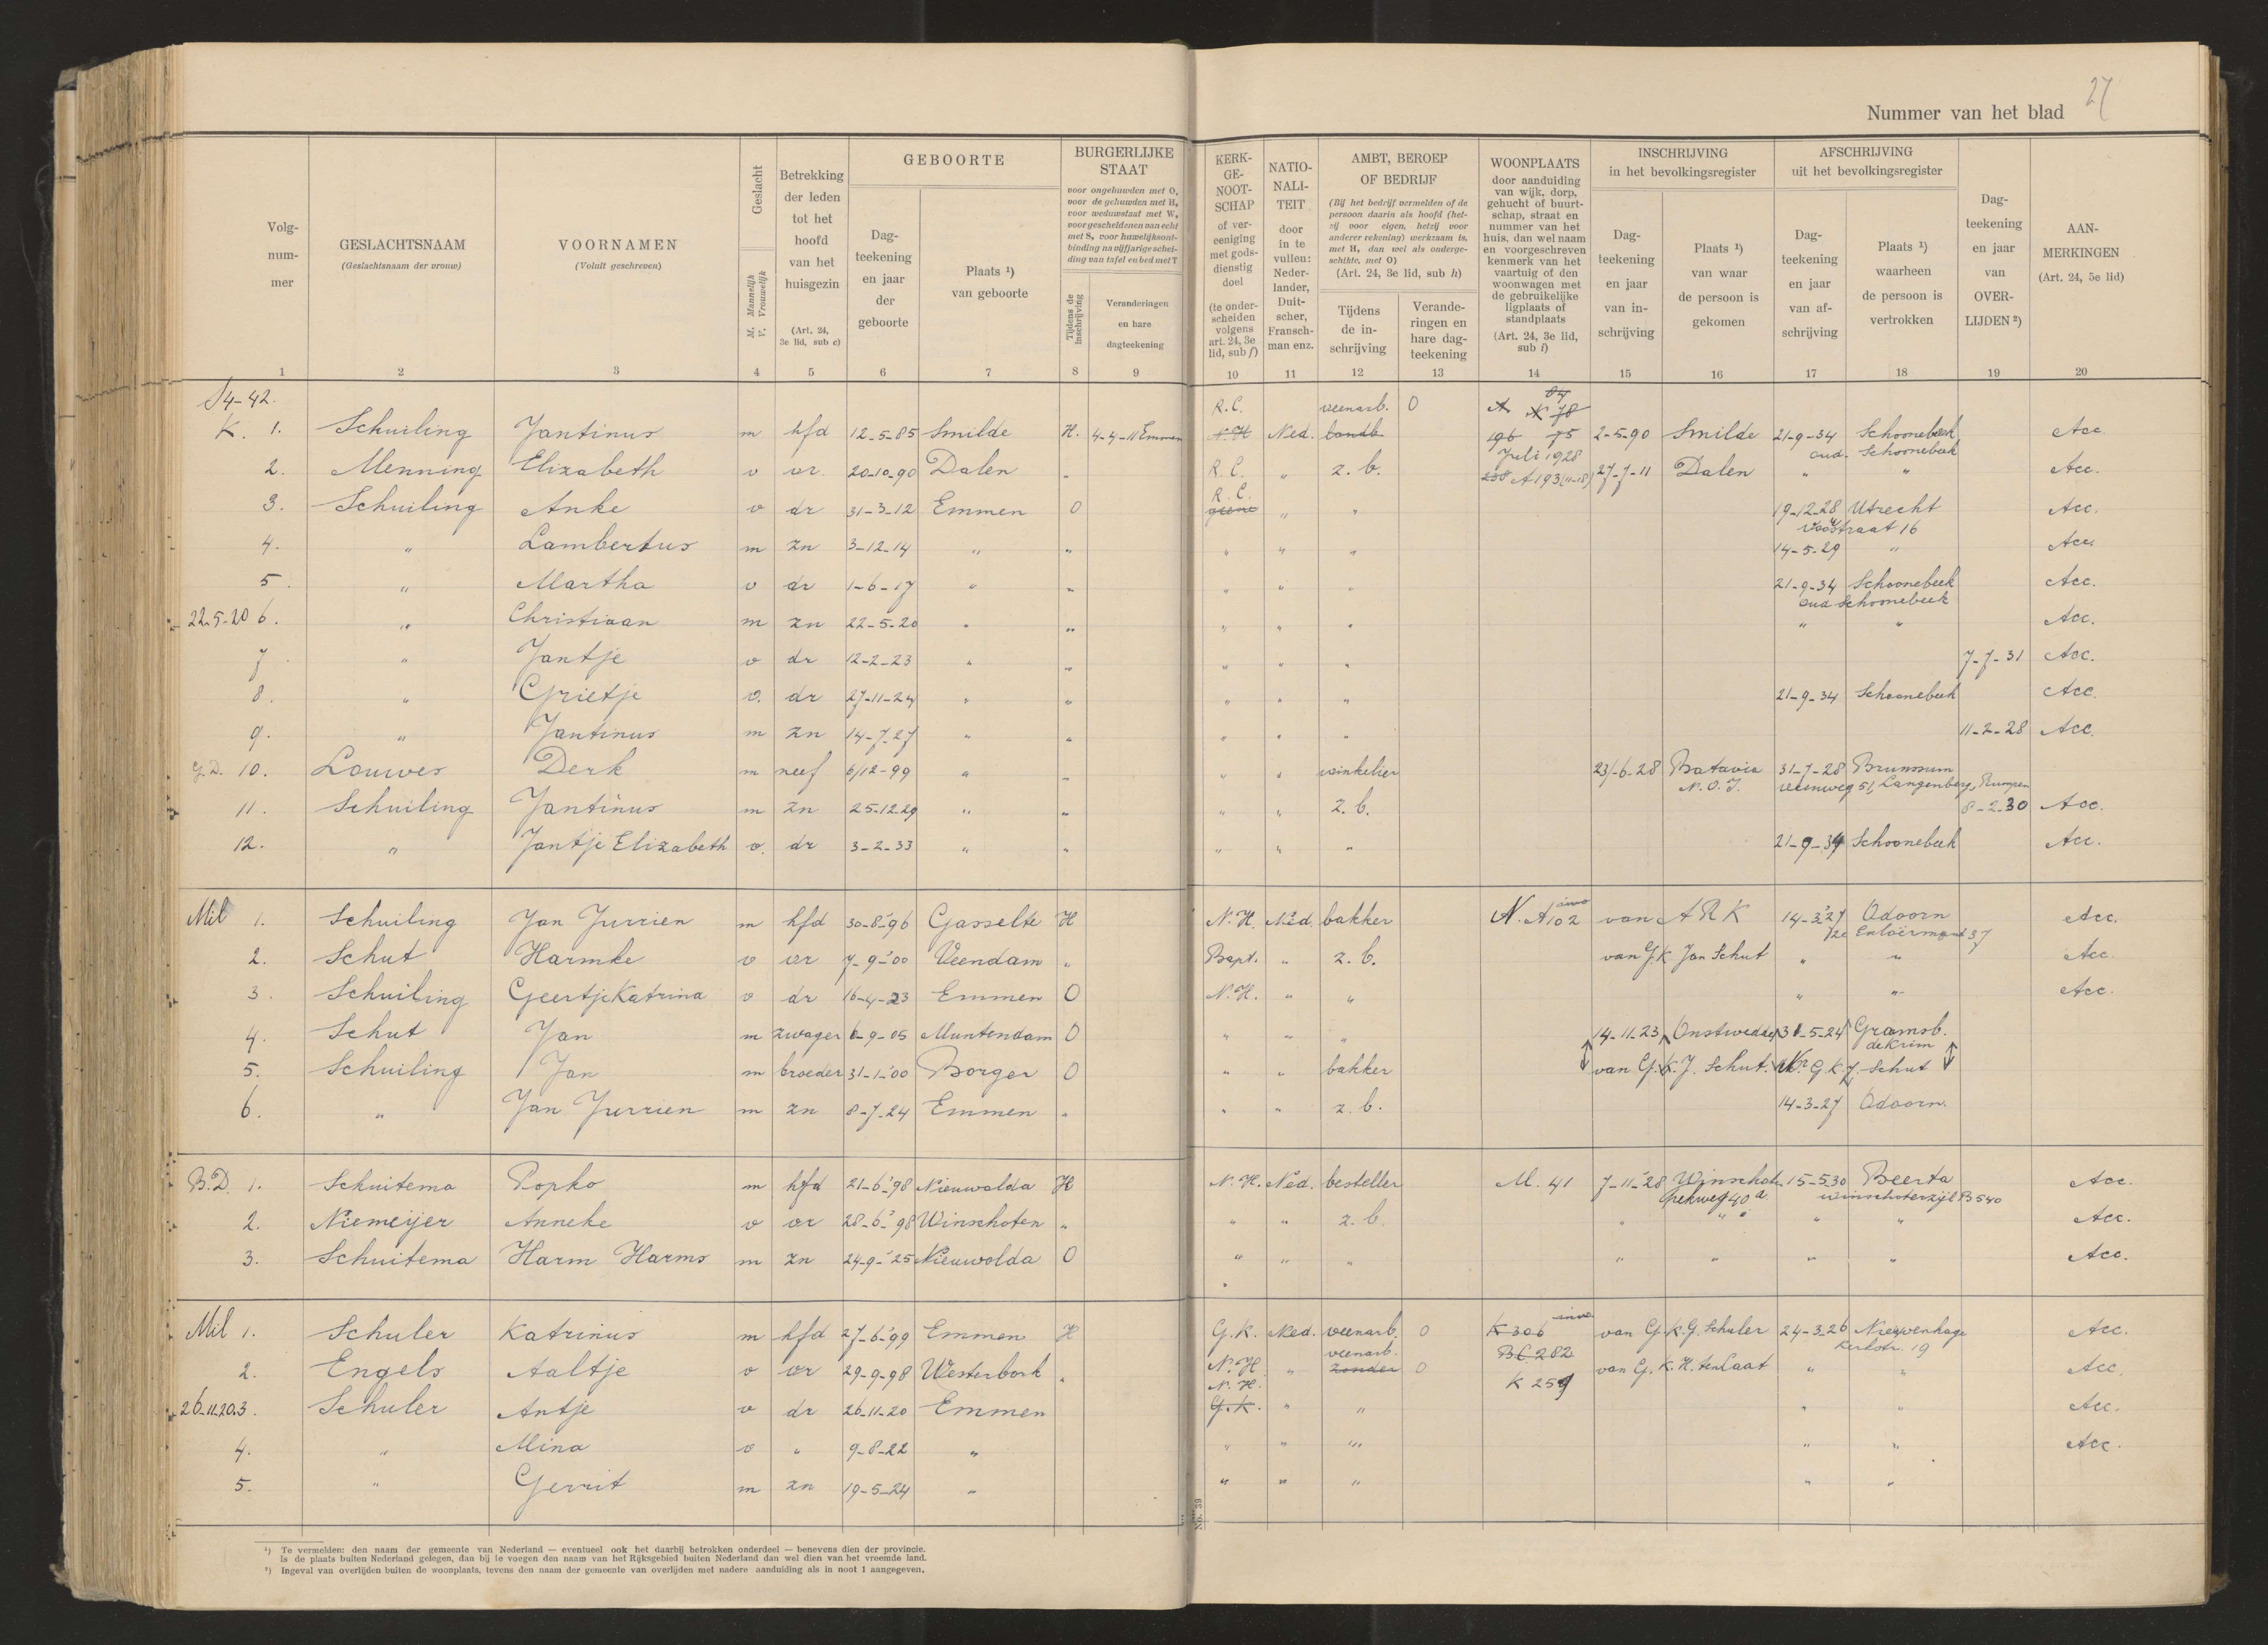 Nummer van het blad 27
Volg-nummer
GESLACHTSNAAM (Geslachtsnaam der vrouw)
VOORNAMEN (Voluit geschreven)
Geslacht M. Mannelijk V. Vrouwelijk
Betrekking der leden tot het hoofd van het huisgezin (Art. 24, 3e lid, sub c)
GEBOORTE
Dag-teekening en jaar der geboorte
Plaats ¹) van geboorte
BURGERLIJKE STAAT
voor ongehuwden met O, voor de gehuwden met H, voor weduwstaat met W, voor gescheidenen van echt met S, voor huwelijksont-binding na vijfjarige schei-ding van tafel en bed met T
Tijdens de inschrijving
Veranderingen en hare dagteekening
KERK-GE-NOOT-SCHAP of ver-eeniging met gods-dienstig doel (te onder-scheiden volgens art. 24, 3e lid, sub f)
NATIO-NALI-TEIT door in te vullen: Neder-lander, Duit-scher, Fransch-man enz.
AMBT, BEROEP OF BEDRIJF
(Bij het bedrijf vermelden of de persoon daarin als hoofd (het-zij voor eigen, hetzij voor anderer rekening) werkzaam is, met H, dan wel als onderge-schikte, met O) (Art. 24, 3e lid, sub h)
Tijdens de in-schrijving
Verande-ringen en hare dag-teekening
WOONPLAATS door aanduiding van wijk, dorp, gehucht of buurt-schap, straat en nummer van het huis, dan wel naam en voorgeschreven kenmerk van het vaartuig of den woonwagen met de gebruikelijke ligplaats of standplaats (Art. 24, 3e lid, sub i)
INSCHRIJVING in het bevolkingsregister
Dag-teekening en jaar van in-schrijving
Plaats ¹) van waar de persoon is gekomen
AFSCHRIJVING uit het bevolkingsregister
Dag-teekening en jaar van af-schrijving
Plaats ¹) waarheen de persoon is vertrokken
Dag-teekening en jaar van OVER-LIJDEN ²)
AAN-MERKINGEN (Art. 24, 5e lid)
1 2 3 4 5 6 7 8 9 10 11 12 13 14 15 16 17 18 19 20
S4-42. R.C. veenarb. O
K. 1. Schuiling Jantinus m hfd 12-5-85 Smilde H. 4-4-11 Emmen N.H Ned. landb. 196 75 2-5-90 Smilde 21-9-34 Schoonebeek Acc.
Juli 1928 oud-Schoonebeek
2. Menning Elizabeth v vr. 20-10-90 Dalen " R.C. " z.b. 238 A193 (11-18) 27-7-11 Dalen " " Acc.
R.C.
3. Schuiling Anke v dr 31-3-12 Emmen O geene " " 19-12-28 Utrecht Acc.
Voorstraat 16
4. " Lambertus m zn 3-12-14 " " " " " 14-5-29 " Acc.
5. " Martha v dr 1-6-17 " " " " " 21-9-34 Schoonebeek Acc.
oud Schoonebeek
22-5-20 6. " Christiaan m zn 22-5-20 " " " " " " " Acc.
7. " Jantje v dr 12-2-23 " " " " " 7-7-31 Acc.
8. " Grietje v. dr 27-11-24 " " " " " 21-9-34 Schoonebeek Acc.
9. " Jantinus m zn 14-7-27 " " " " " 11-2-28 Acc.
G.D. 10. Louwes Derk m neef 6/12-99 " " " " winkelier 23/-6-28 Batavia 31-7-28 Brunssum
N.O.I. veenweg 51, Langenberg, Rumpen
11. Schuiling Jantinus m zn 25-12-29 " " " " z.b. 8-2-30 Acc.
12. " Jantje Elizabeth v. dr 3-2-33 " " " " " 21-9-34 Schoonebeek Acc.
Mil 1. Schuiling Jan Jurrien m hfd 30-8-'96 Gasselte H N.H. Ned. bakker N. A102 van A R K 14-3-'27 Odoorn Acc.
2e Exloërmond 37
2. Schut Harmke v vr 7-9-'00 Veendam " Bapt. " z.b. van G.K Jan Schut " " Acc.
3. Schuiling Geertje Katrina v dr 16-4-23 Emmen O N.H. " " " " Acc.
4. Schut Jan m zwager 6-9-05 Muntendam O " " " 14-11-23 Onstwedde 31-5-24 Gramsb.
de Krim
5. Schuiling Jan m broeder 31-1-'00 Borger O " " bakker van G.K.J. Schut. Nr G K J. Schut
6. " Jan Jurrien m zn 8-7-24 Emmen " " " z.b. 14-3-27 Odoorn.
B.D. 1. Schuitema Popko m hfd 21-6-'98 Nieuwolda H N.H. Ned. besteller M. 41 7-11-'28 Winschoten 15-5-30 Beerta Acc.
40a winschoterzijl B540
2. Niemeijer Anneke v vr 28-6-'98 Winschoten " " " z.b. " " " " Acc.
3. Schuitema Harm Harms m zn 24-9-'25 Nieuwolda O " " " " " " " Acc.
Mil 1. Schuler Katrinus m hfd 27-6-'99 Emmen H G.K. Ned. veenarb. O K 306 van G.K.G. Schuler 24-3-26 Nieuwenhage Acc.
veenarb. BC 282 Kerkstr. 19
2. Engels Aaltje v vr 29-9-98 Westerbork " N.H. " zonder O van G.K.H. ten Caat " " Acc.
N.H. K 259
26-11-20 3. Schuler Antje v dr 26-11-20 Emmen G.K. " " " " Acc.
4. " Mina v " 9-8-22 " " " " " " Acc.
5. " Gerrit m zn 19-5-24 " " " " " "
No. 39
¹) Te vermelden: den naam der gemeente van Nederland — eventueel ook het daarbij betrokken onderdeel — benevens dien der provincie.
Is de plaats buiten Nederland gelegen, dan bij te voegen den naam van het Rijksgebied buiten Nederland dan wel dien van het vreemde land.
²) Ingeval van overlijden buiten de woonplaats, tevens den naam der gemeente van overlijden met nadere aanduiding als in noot 1 aangegeven.